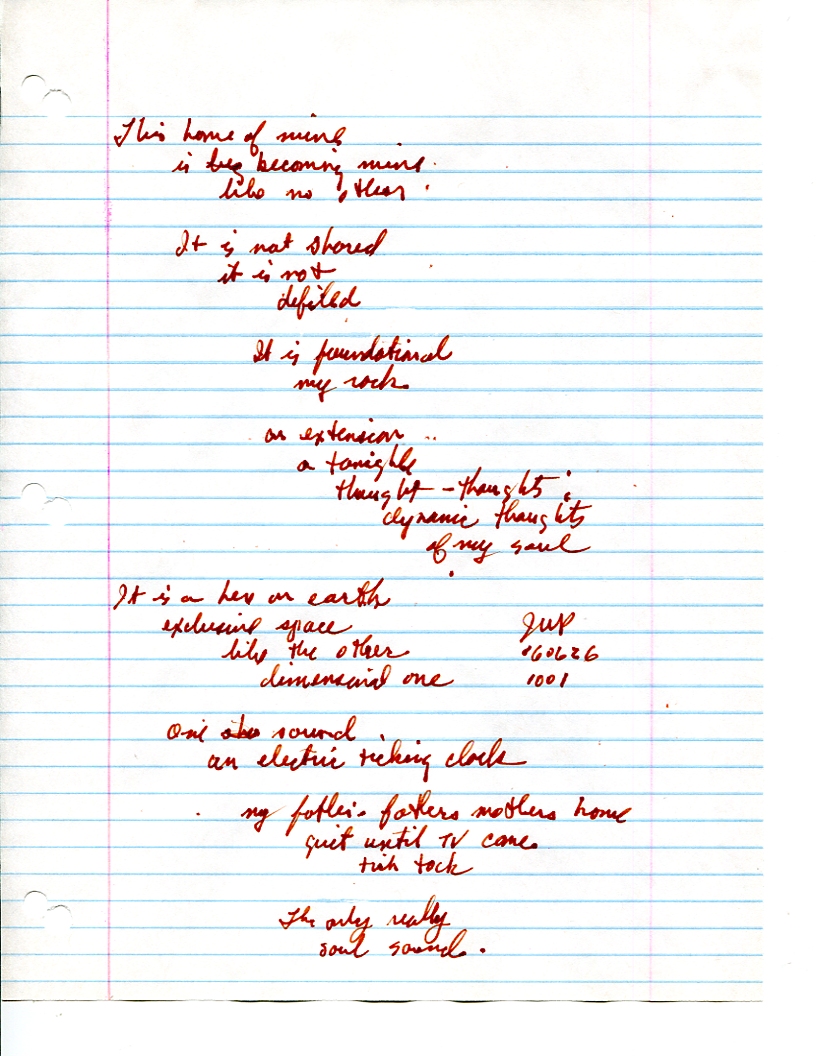 This home of mine
is beg becoming mine
like no other.
It is not shared
it is not
defiled
It is foundational
my rock
an extension ..
a tangible
thought - thoughts
dynamic thoughts
of my soul
It is a on earth
exclusive space
like the other
dimensional one
JWP
060626
1001
One sound
an electric ticking clock
my father's fathers mothers home
quiet until TV came
tick tock
The only really
soul sound.